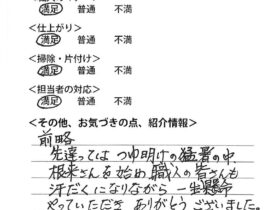 満足 普通 不満
<仕上がり>
満足 普通 不満
<掃除・片付け>
満足 普通 不満
<担当者の対応>
満足 普通 不満
<その他、お気づきの点、紹介情報>
前略
先達っては つゆ明けの猛暑の中
根来さんを始め 職人の皆さんも
汗だくになりながら 一生懸命
やっていただき ありがとうございました。